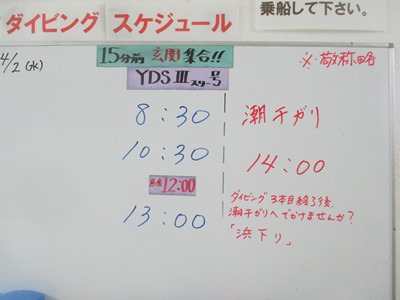 ダイビング スケジュール
乗船して下さい。
4/2(水)
15分前 玄関 集合!!
※敬称略
YDSⅢスリー号
8:30
潮干ガリ
10:30
14:00
昼食 12:00
13:00
ダイビング3本目終了後、
潮干ガリへでかけませんか?
「浜下り」